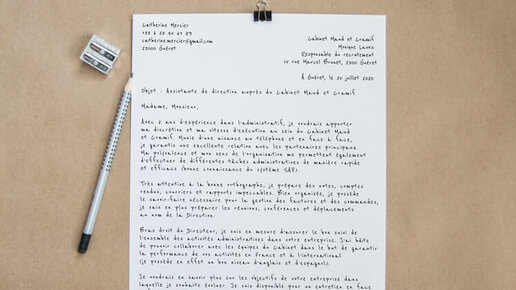 Catherine Mercier
+33 6 23 45 67 89
catherine.mercier@gmail.com
23000 Guéret
Cabinet Maud et Cramif
Monique Lavoie
Responsable du recrutement
15 rue Marcel Brunet, 2300 Guéret
À Guéret, le 20 juillet 2020
Objet : Assistante de direction auprès du Cabinet Maud et Cramif
Madame, Monsieur,
Avec 2 ans d'expérience dans l'administratif, je voudrais apporter
ma discrétion et ma vitesse d'exécution au sein du Cabinet Maud
et Cramif. Munie d'une aisance au téléphone et en face à face,
je garantis une excellente relation avec les partenaires principaux.
Ma polyvalence et mon sens de l'organisation me permettent également
d'effectuer de différentes tâches administratives de manière rapide
et efficace (bonne connaissance du système SAP).
Très attentive à la bonne orthographe, je prépare des notes, comptes
rendus, courriers et rapports impeccables. Bien organisée, je possède
le savoir-faire nécessaire pour la gestion des factures et des commandes,
je sais en plus préparer les réunions, conférences et déplacements
au nom de la Direction.
Bras droit du Directeur, je suis en mesure d'assurer le bon suivi de
l'ensemble des activités administratives dans votre entreprise. J'ai hâte
de pouvoir collaborer avec les équipes du Cabinet dans le but de garantir
la performance de vos activités en France et à l'international
(je possède en effet un bon niveau d'anglais et d'espagnol).
Je voudrais en savoir plus sur les objectifs de votre entreprise dans
laquelle je souhaite évoluer. Je suis disponible pour un entretien en face